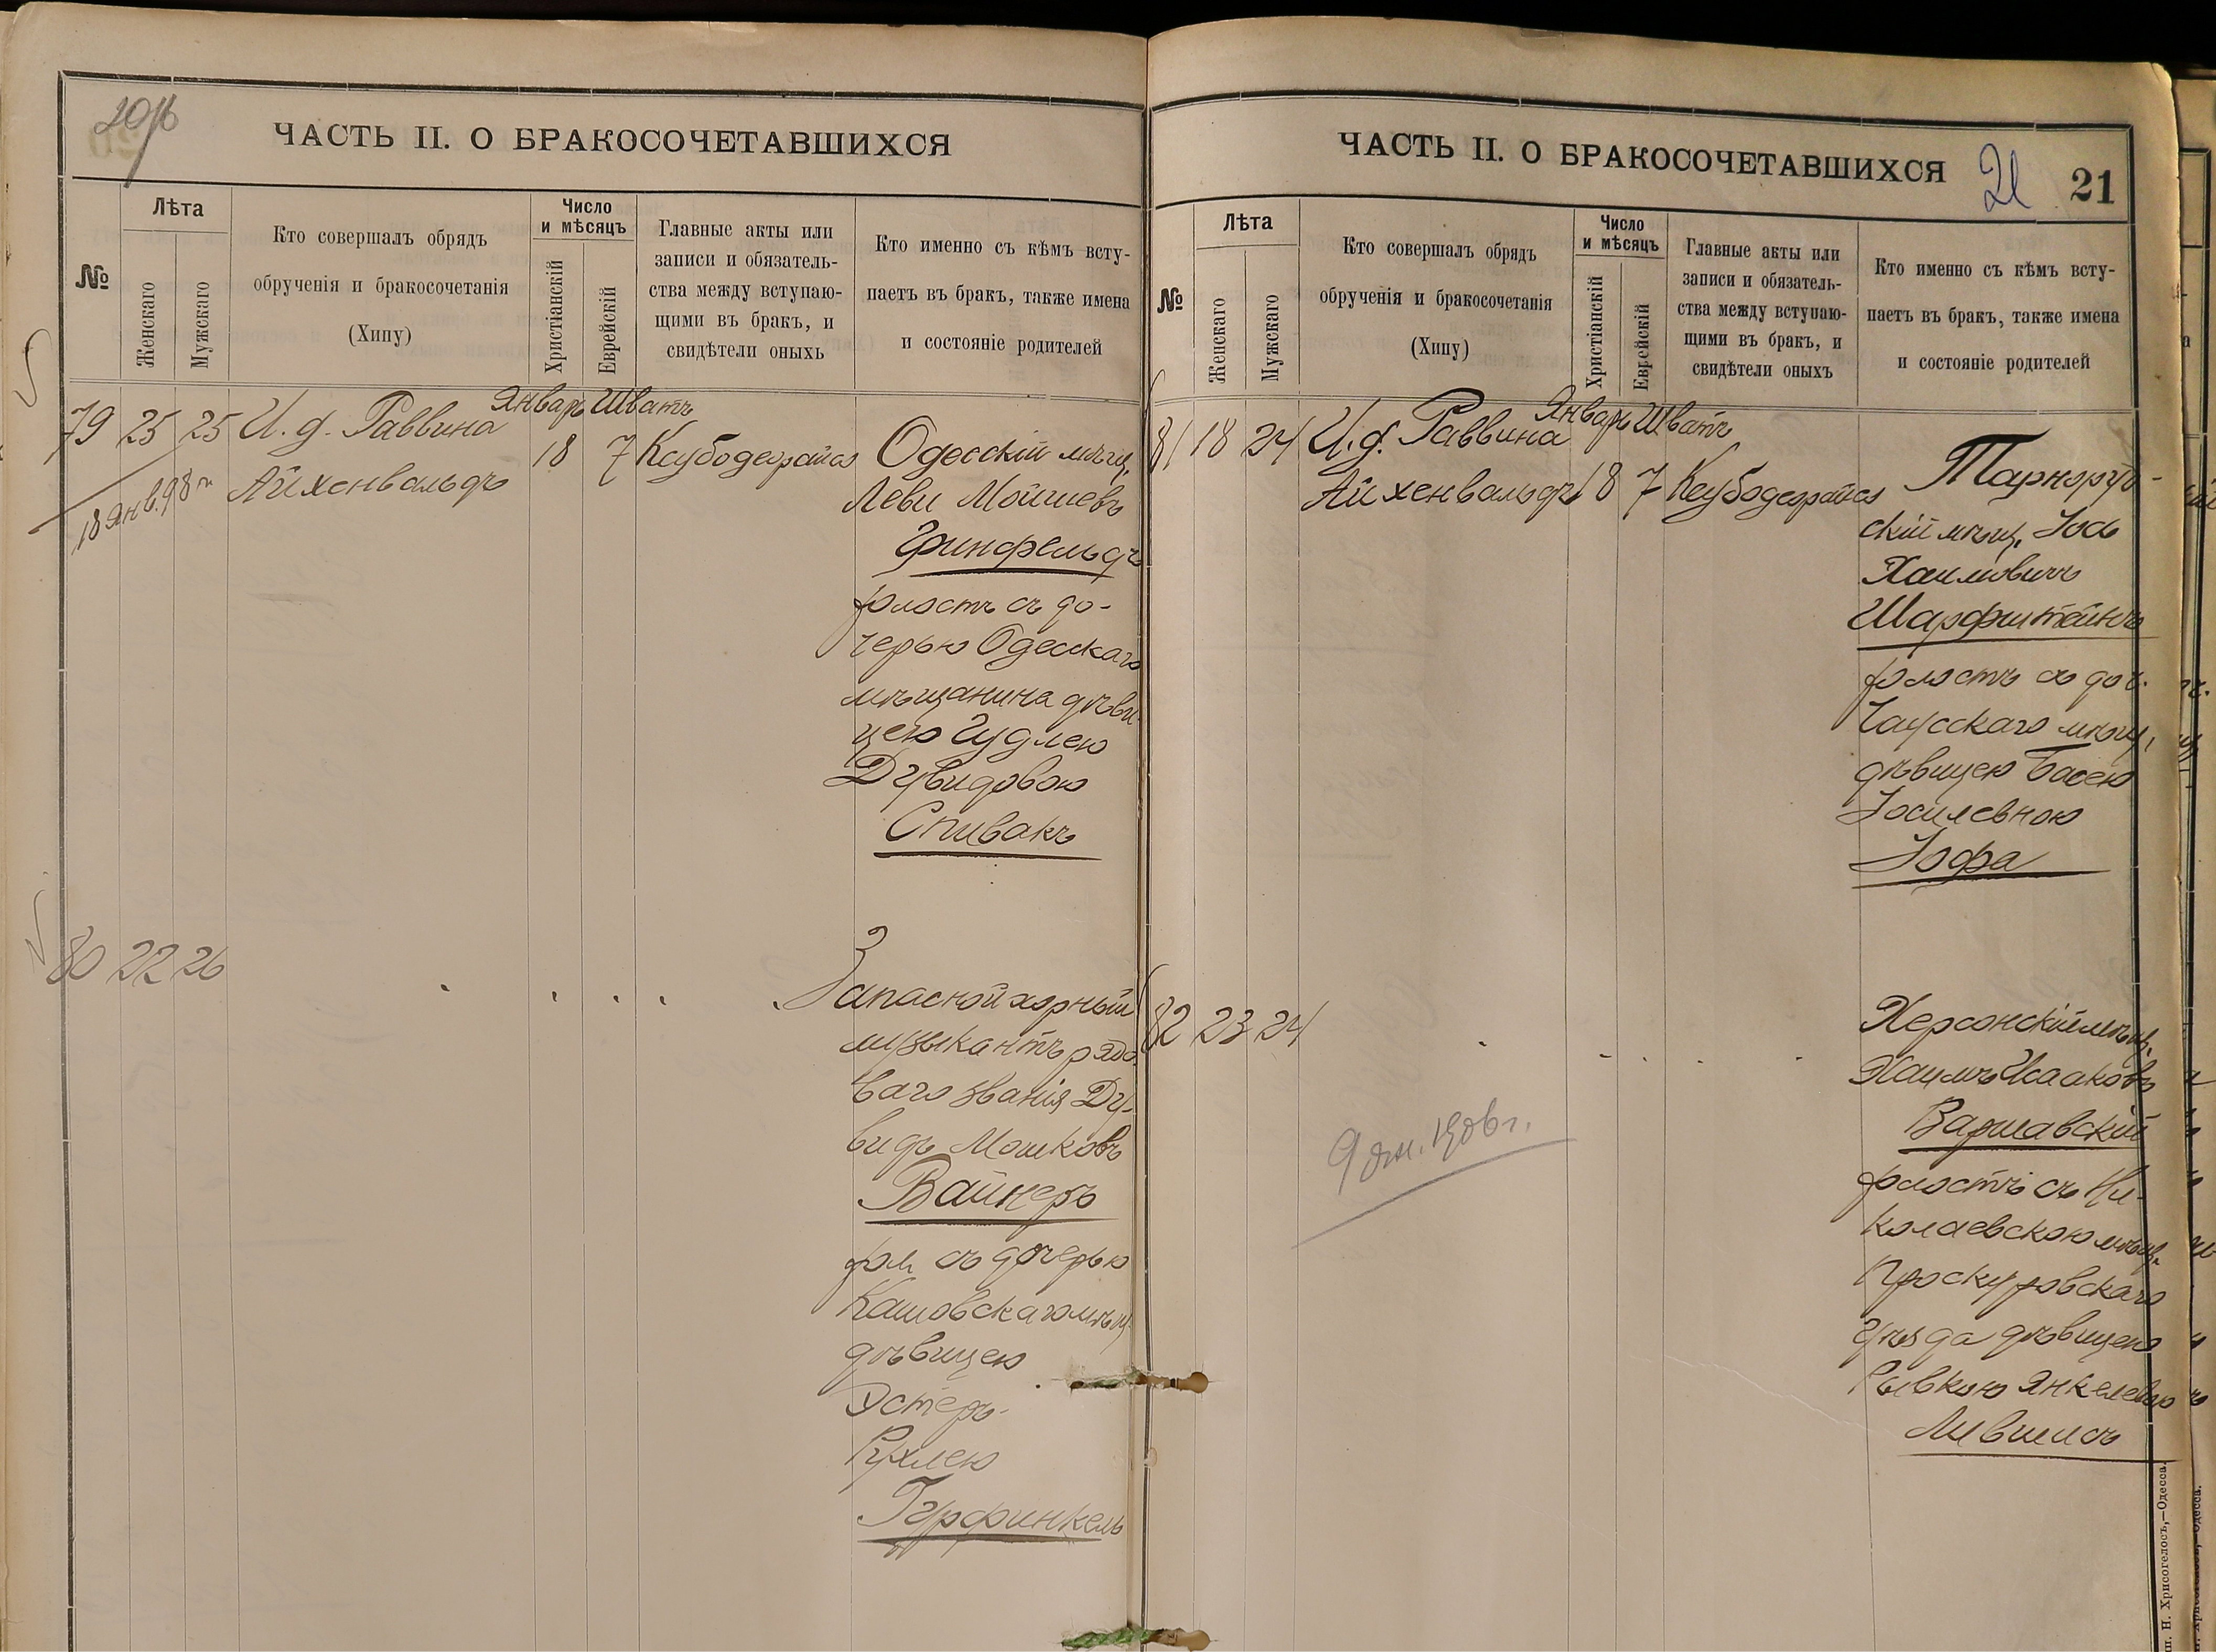 20/об
ЧАСТЬ II. О БРАКОСОЧЕТАВШИХСЯ
№
Лѣта
Женскаго
Мужскаго
Кто совершалъ обрядъ
обрученія и бракосочетанія
(Хипу)
Число
и мѣсяцъ
Христіанскій
Еврейскій
Главные акты или
записи и обязатель-
ства между вступаю-
щими въ бракъ, и
свидѣтели оныхъ
Кто именно съ кѣмъ всту-
паетъ въ бракъ, также имена
и состояніе родителей
Январь Шватъ
79 25 25 И. д. Раввина
Айхенвальдъ
18 7 Ксубодеорайсо
18 янв. 98 г.
Одесскій мѣщ.
Леви Мойшевъ
Финфельдъ
холостъ съ до-
черью Одесскаго
мѣщанина дѣви-
цею Гудлею
Дувидовою
Спивакъ
80 22 26
Запасной хорный
музыкантъ рядо-
ваго званія Ду-
видъ Мошковъ
Вайнеръ
хол. съ дочерью
Кашовскаго мѣщ.
дѣвицею
Эстеръ-
Рухлею
Гарфинкель
ЧАСТЬ II. О БРАКОСОЧЕТАВШИХСЯ
21
21
№
Лѣта
Женскаго
Мужскаго
Кто совершалъ обрядъ
обрученія и бракосочетанія
(Хипу)
Число
и мѣсяцъ
Христіанскій
Еврейскій
Главные акты или
записи и обязатель-
ства между вступаю-
щими въ бракъ, и
свидѣтели оныхъ
Кто именно съ кѣмъ всту-
паетъ въ бракъ, также имена
и состояніе родителей
Январь Шватъ
81 18 24 И. д. Раввина
Айхенвальдъ
18 7 Ксубодеорайсо
Таркоруд-
скій мѣщ. Іось
Хаимовичъ
Шарфштейнъ
холостъ съ доч.
Чаусскаго мѣщ.
дѣвицею Басею
Іосилевною
Іофа
82 23 24
9 дек. 1906 г.
Херсонскій мѣщ.
Хаимъ Исааковъ
Варшавскій
холостъ съ Ни-
колаевскою мѣщ.
Проскуровскаго
уѣзда дѣвицею
Рывкою Янкелевою
Лившисъ
Н. Хрисогелосъ,—Одесса.